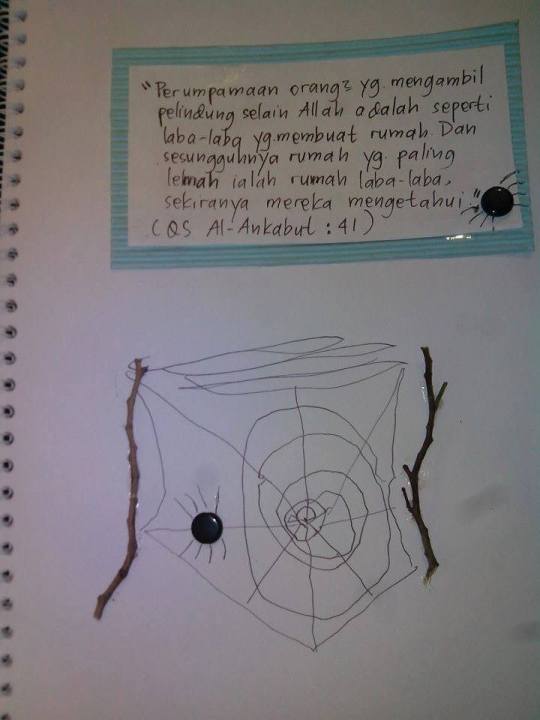 "Perumpamaan orang2 yg. mengambil
pelindung selain Allah adalah seperti
laba-laba yg.membuat rumah. Dan
sesungguhnya rumah yg. paling
lemah ialah rumah laba-laba,
sekiranya mereka mengetahui."
(QS Al-Ankabut : 41)